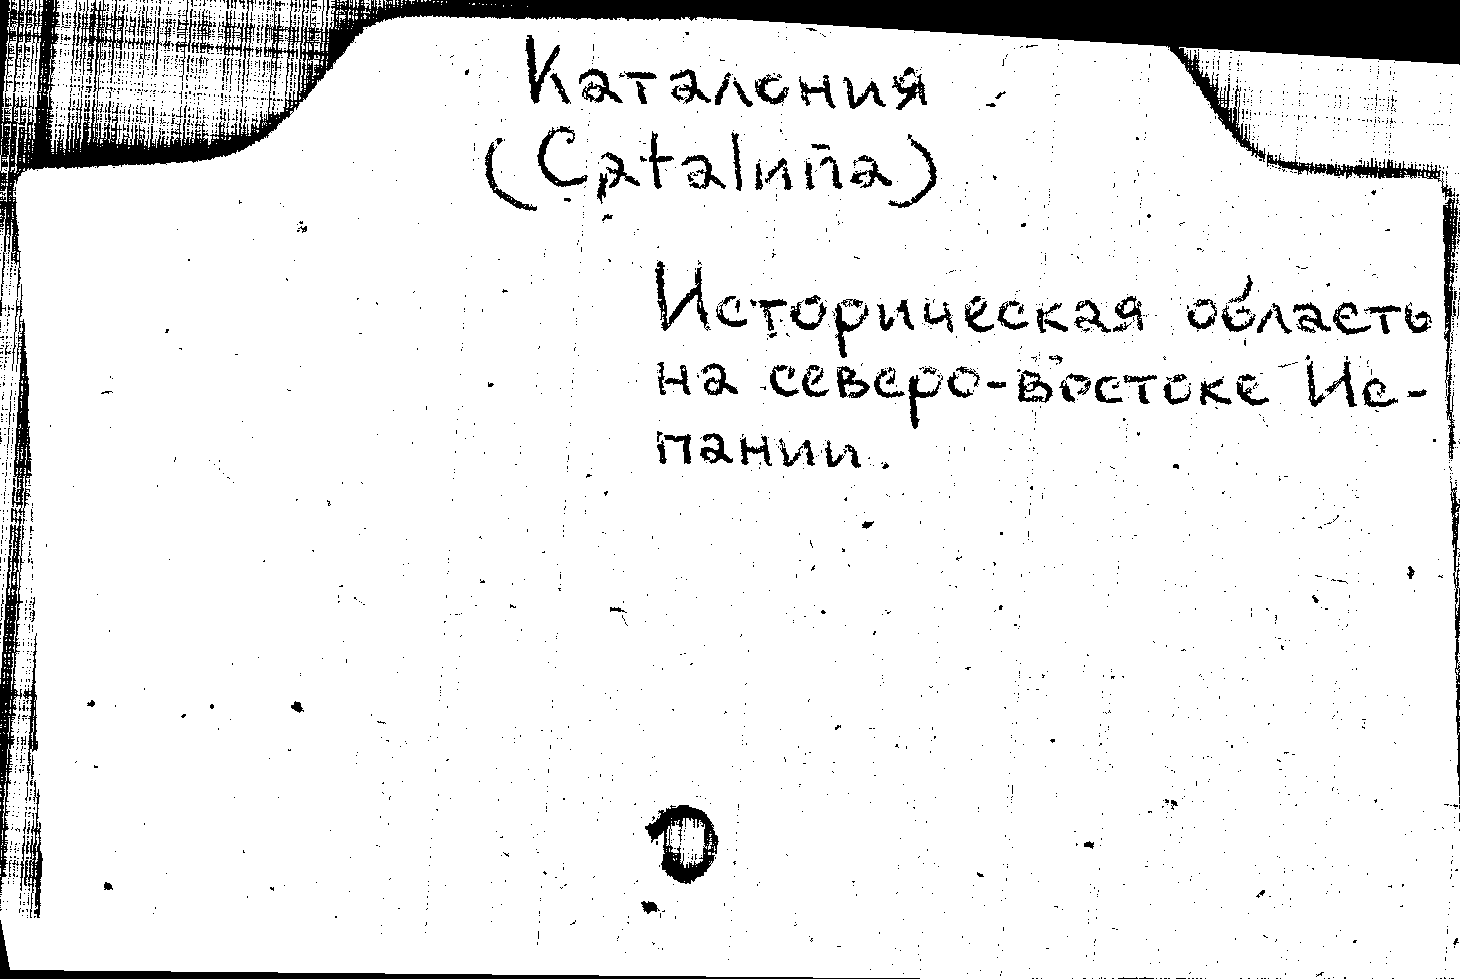 Каталония
(Cataluña)
Историческая область
на северо-востоке Ис-
пании.